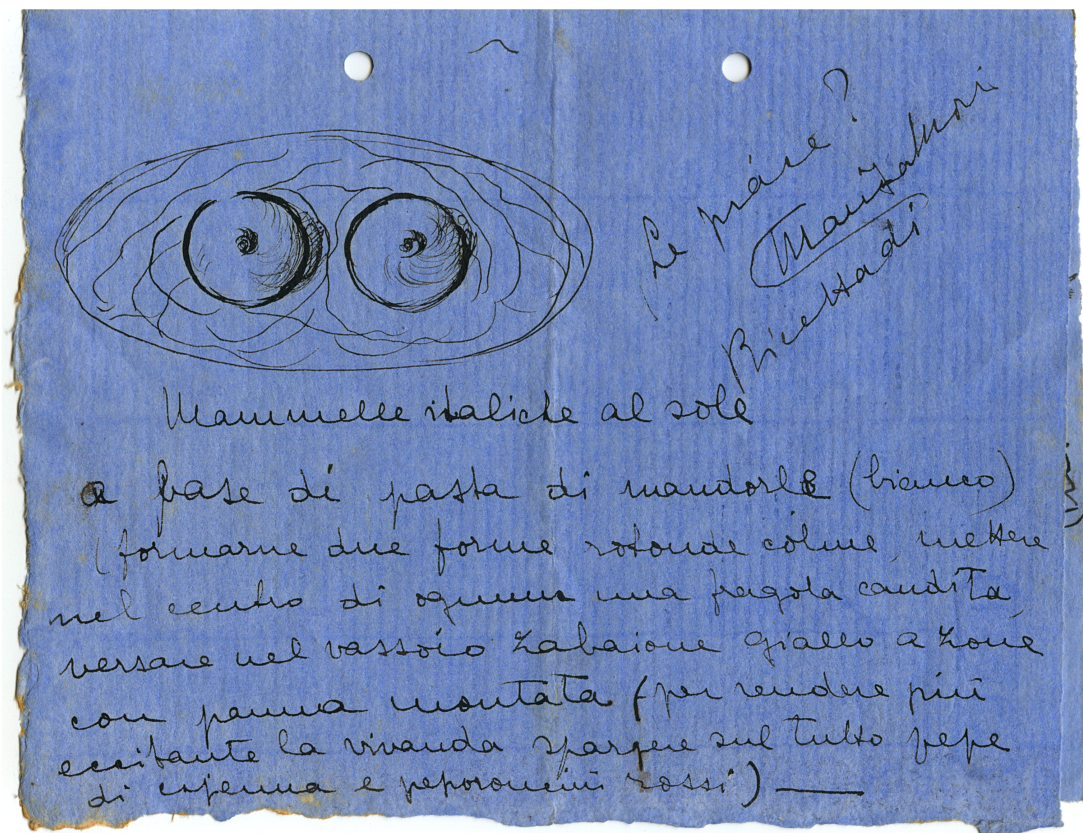 Le piace?
Marisa Mori
Ricetta di
Mammelle italiche al sole
a base di pasta di mandorle (bianco)
(formarne due forme rotonde colme, mettere
nel centro di ognuna una fragola candita,
versare nel vassoio zabaione giallo a zone
con panna montata (per rendere più
eccitante la vivanda spargere sul tutto pepe
di cajenna e peporoncini rossi)